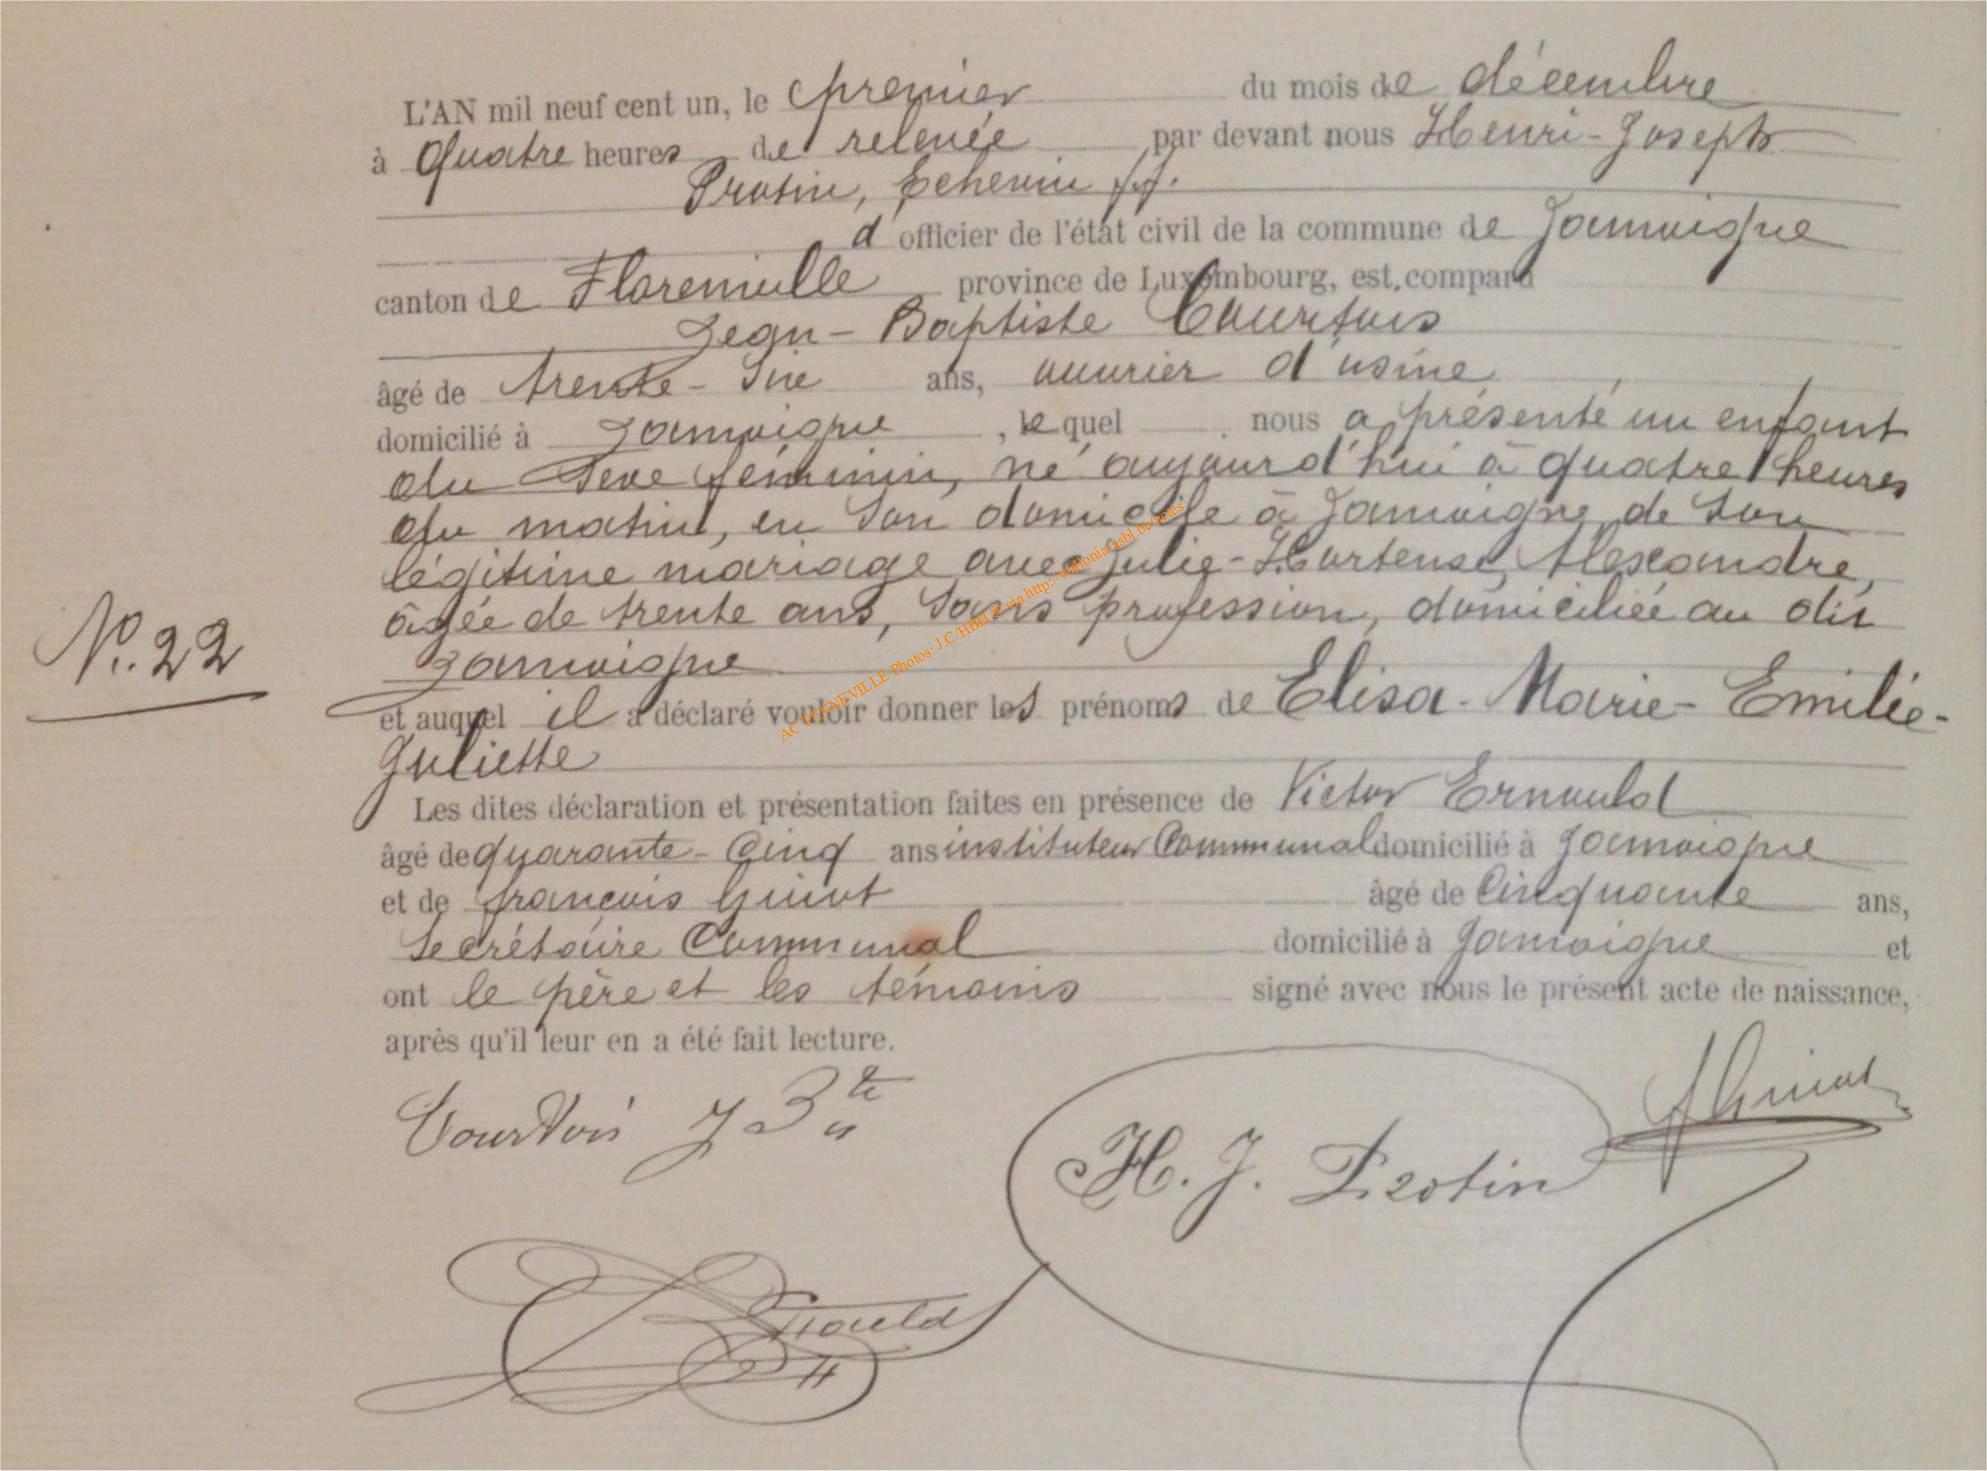 L'AN mil neuf cent un, le premier du mois de décembre
à quatre heures de relevée par devant nous Henri-Joseph
Protin, Echevin ff.
d'officier de l'état civil de la commune de Jamoigne
canton de Florenville province de Luxembourg, est comparu
Jean-Baptiste Courtois
âgé de trente-six ans, ouvrier d'usine
domicilié à Jamoigne, lequel nous a présenté un enfant
du sexe féminin, né aujourd'hui à quatre heures
du matin, en son domicile à Jamoigne de son
légitime mariage avec Julie-Hortense Alexandre,
âgée de trente ans, sans profession, domiciliée au dit
Jamoigne
N° 22
et auquel il a déclaré vouloir donner les prénoms de Elisa-Marie-Emilie-
Juliette
Les dites déclaration et présentation faites en présence de Victor Ernould
âgé de quarante-cinq ans instituteur communal domicilié à Jamoigne
et de françois Guiot âgé de cinquante ans,
secrétaire communal domicilié à Jamoigne et
ont le père et les témoins signé avec nous le présent acte de naissance,
après qu'il leur en a été fait lecture.
Courtois J Bte
H. J. Protin
Guiot
Ernould
AC TINNEVILLE Photos: J.C/HBH & via http://wallonia-asbl.be/notes